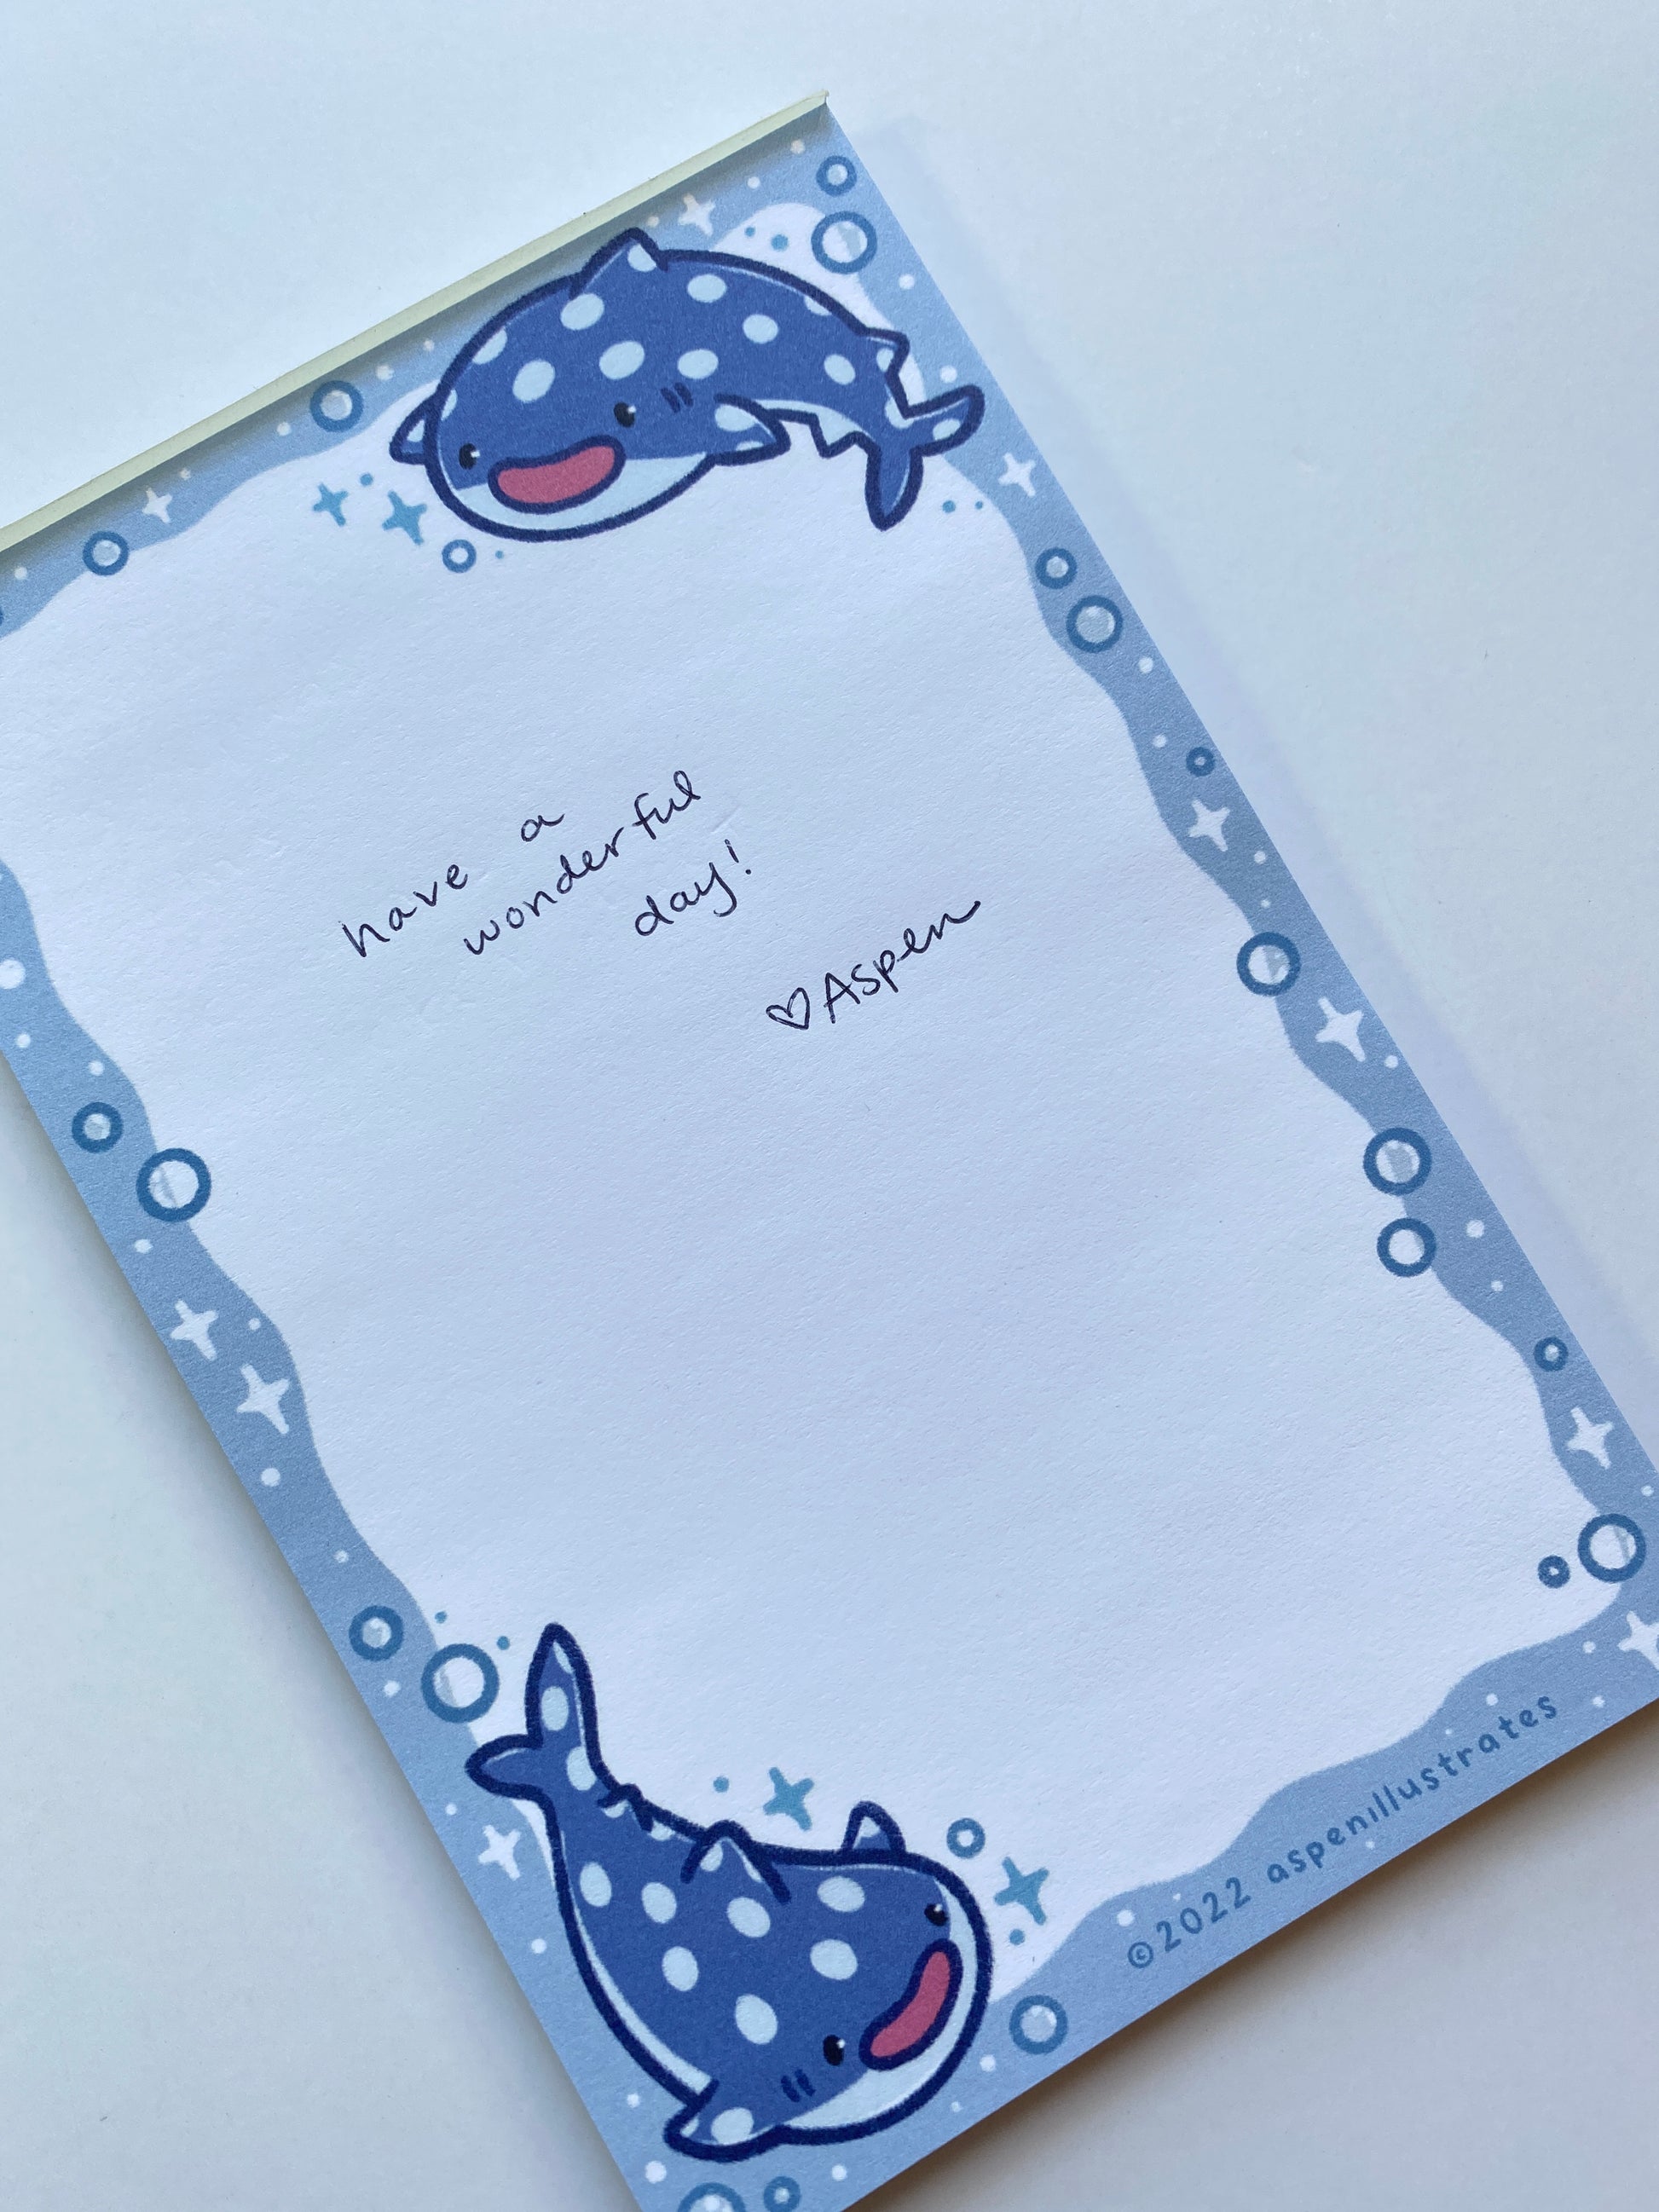 have a
wonderful
day!
♡Aspen
©2022 aspenillustrates